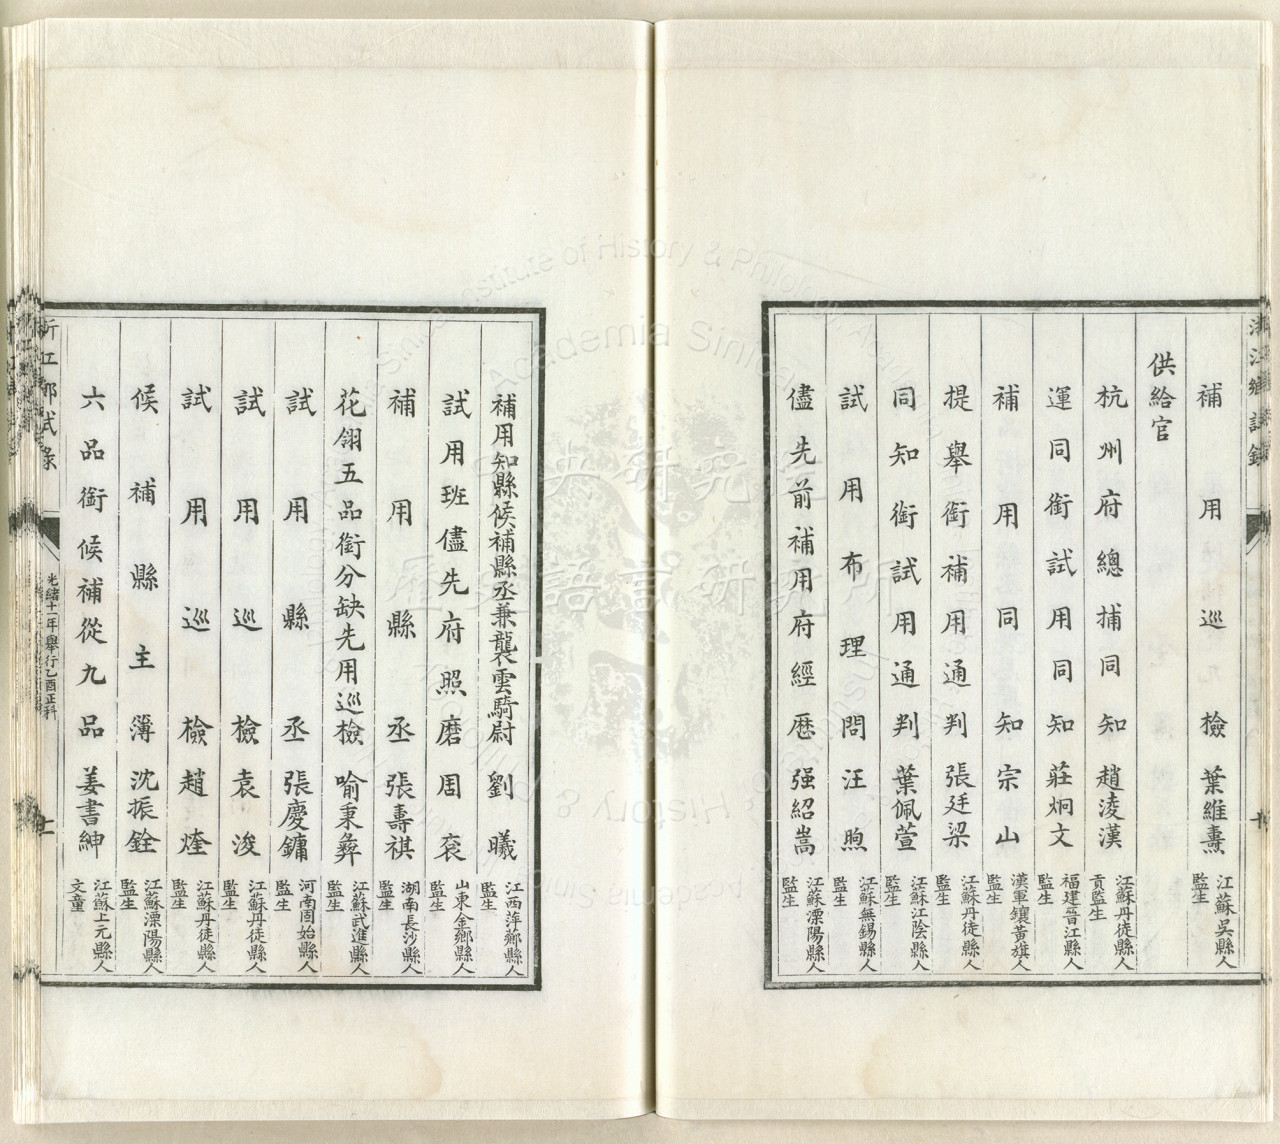 補用巡檢葉維燾 江蘇吳縣人 監生
供給官
杭州府總捕同知趙淩漢 江蘇丹徒縣人 貢監生
運同銜試用同知莊炯文 福建晉江縣人 監生
補用同知宗山 漢軍鑲黃旗人 監生
提舉銜補用通判張廷梁 江蘇丹徒縣人 監生
同知銜試用通判葉佩萱 江蘇江陰縣人 監生
試用布理問汪煦 江蘇無錫縣人 監生
儘先前補用府經歷强紹嵩 江蘇溧陽縣人 監生
補用知縣候補縣丞兼襲雲騎尉劉曦 江西萍鄉縣人 監生
試用班儘先府照磨周袞 山東金鄉縣人 監生
補用縣丞張壽祺 湖南長沙縣人 監生
花翎五品銜分缺先用巡檢喻秉彝 江蘇武進縣人 監生
試用縣丞張慶鏞 河南固始縣人 監生
試用巡檢袁浚 江蘇丹徒縣人 監生
試用巡檢趙煃 江蘇丹徒縣人 監生
候補縣主簿沈振銓 江蘇溧陽縣人 監生
六品銜候補從九品姜書紳 江蘇上元縣人 文童
浙江鄉試錄 光緒十一年舉行乙酉正科